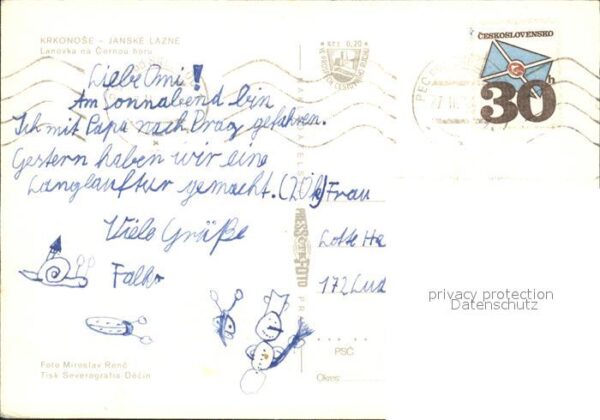 KRKONOŠE - JANSKÉ LÁZNĚ
Lanovka na Černou horu
Kčs 0,20
ČESKOSLOVENSKO
30h
PEC
Liebe Omi!
Am Sonnabend bin
Ich mit Papa nach Prag gefahren.
Gestern haben wir eine
Langlauftur gemacht. (20k)
Viele Grüße
Falko
Frau
Lotte Ha
172 Lud
PRESSFOTO
privacy protection
Datenschutz
PSČ
Okres
Foto Miroslav Řenč
Tisk Severografia Děčín